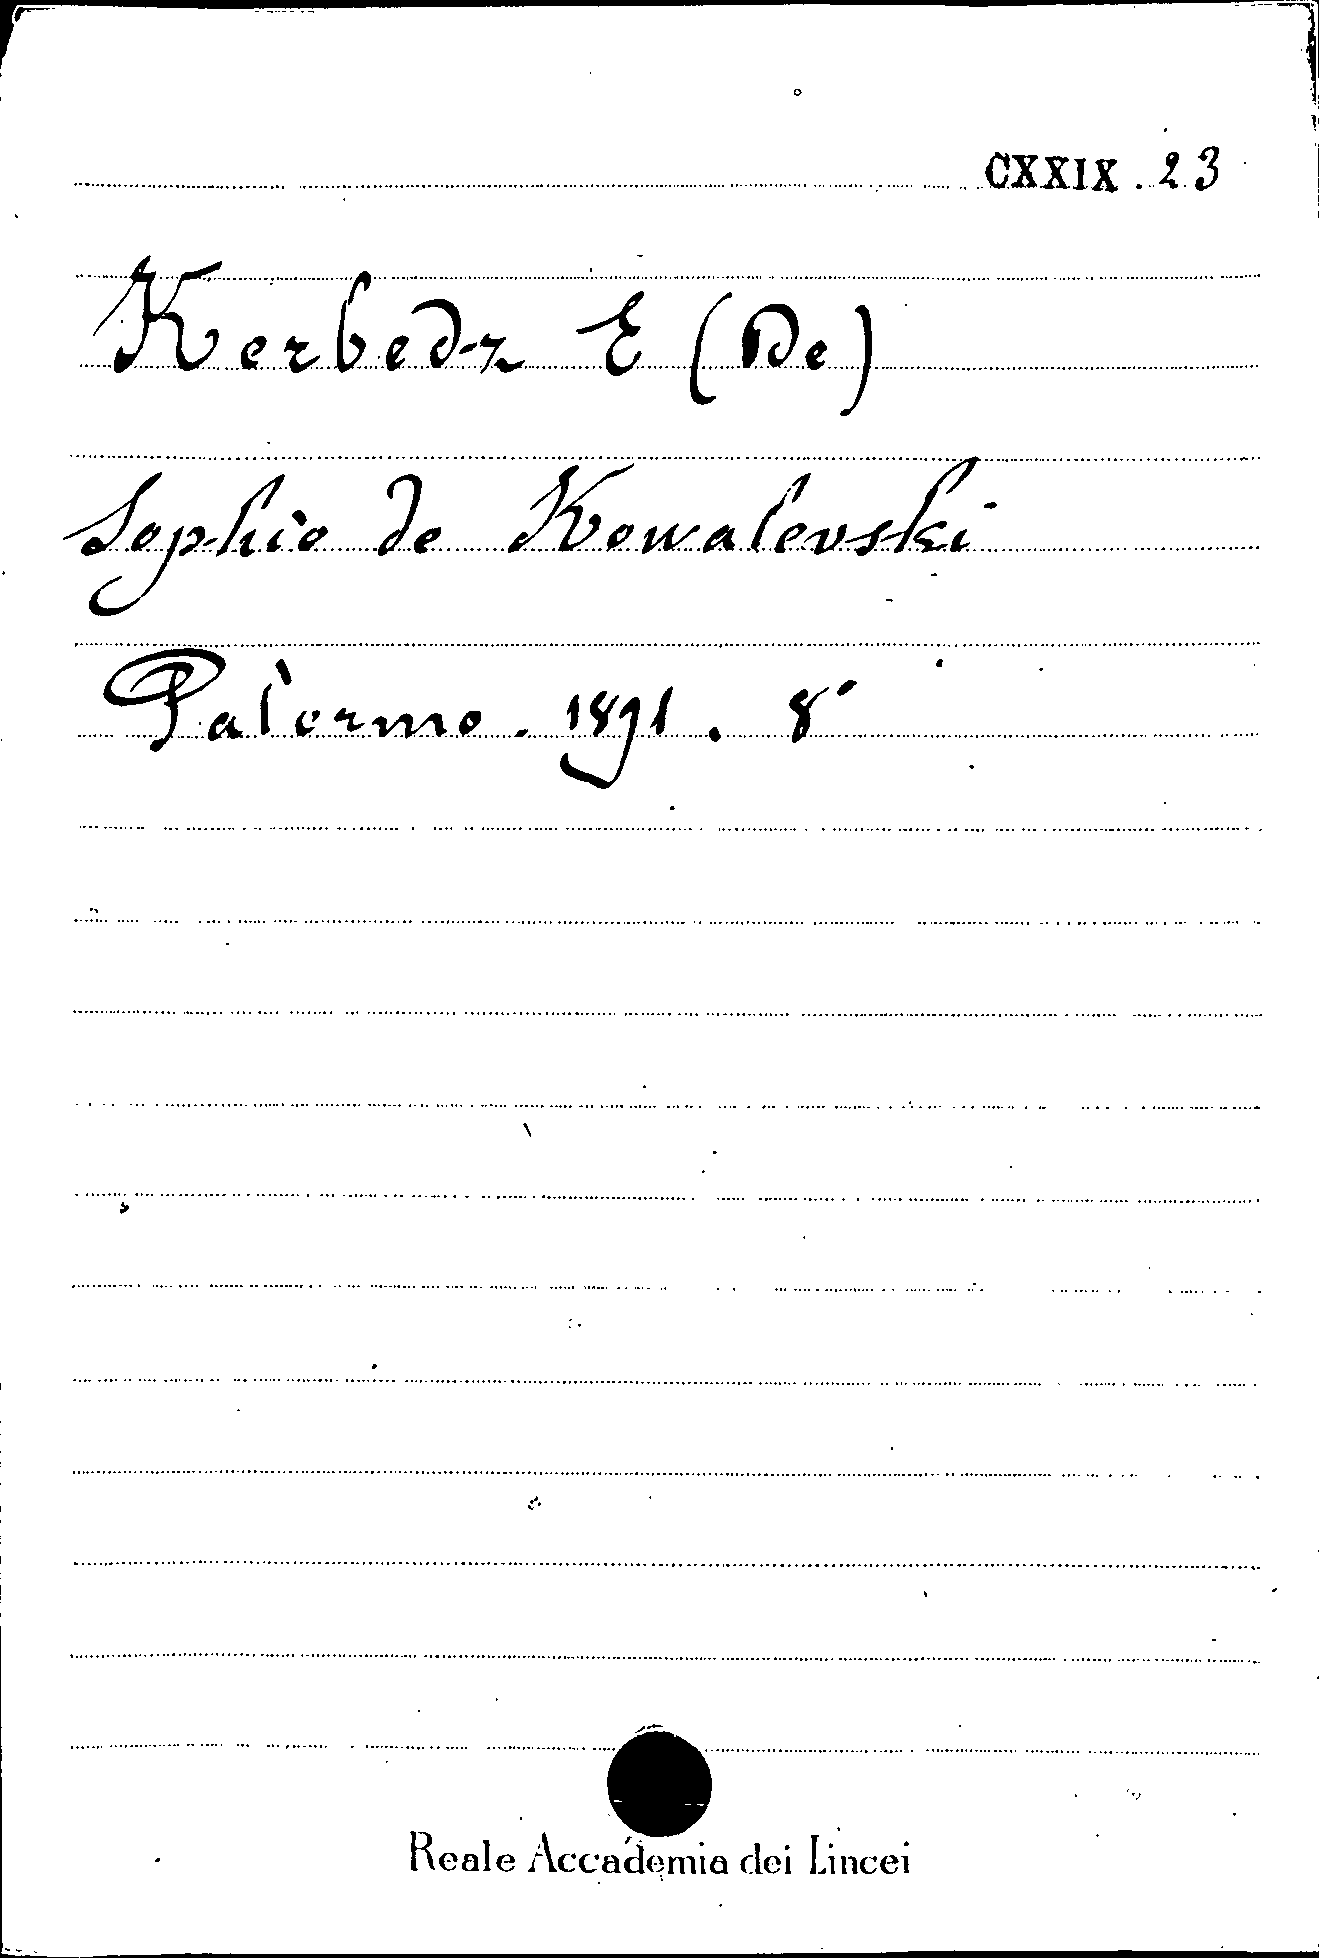 CXXIX . 23
Kerbedz E (De)
Sophie de Kowalevski
Palermo . 1891 . 8°
Reale Accademia dei Lincei